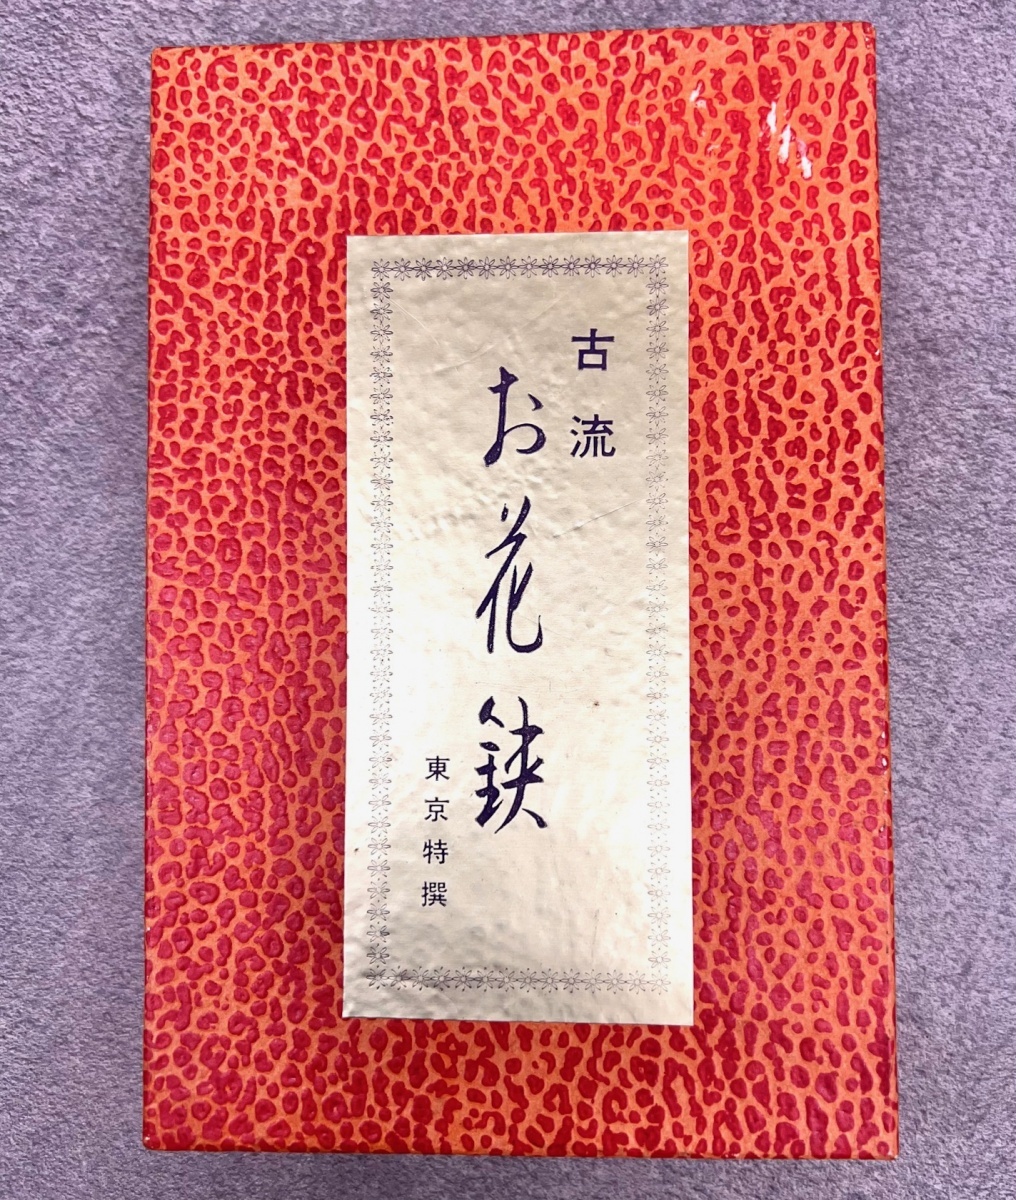 古流
お花鋏
東京特撰